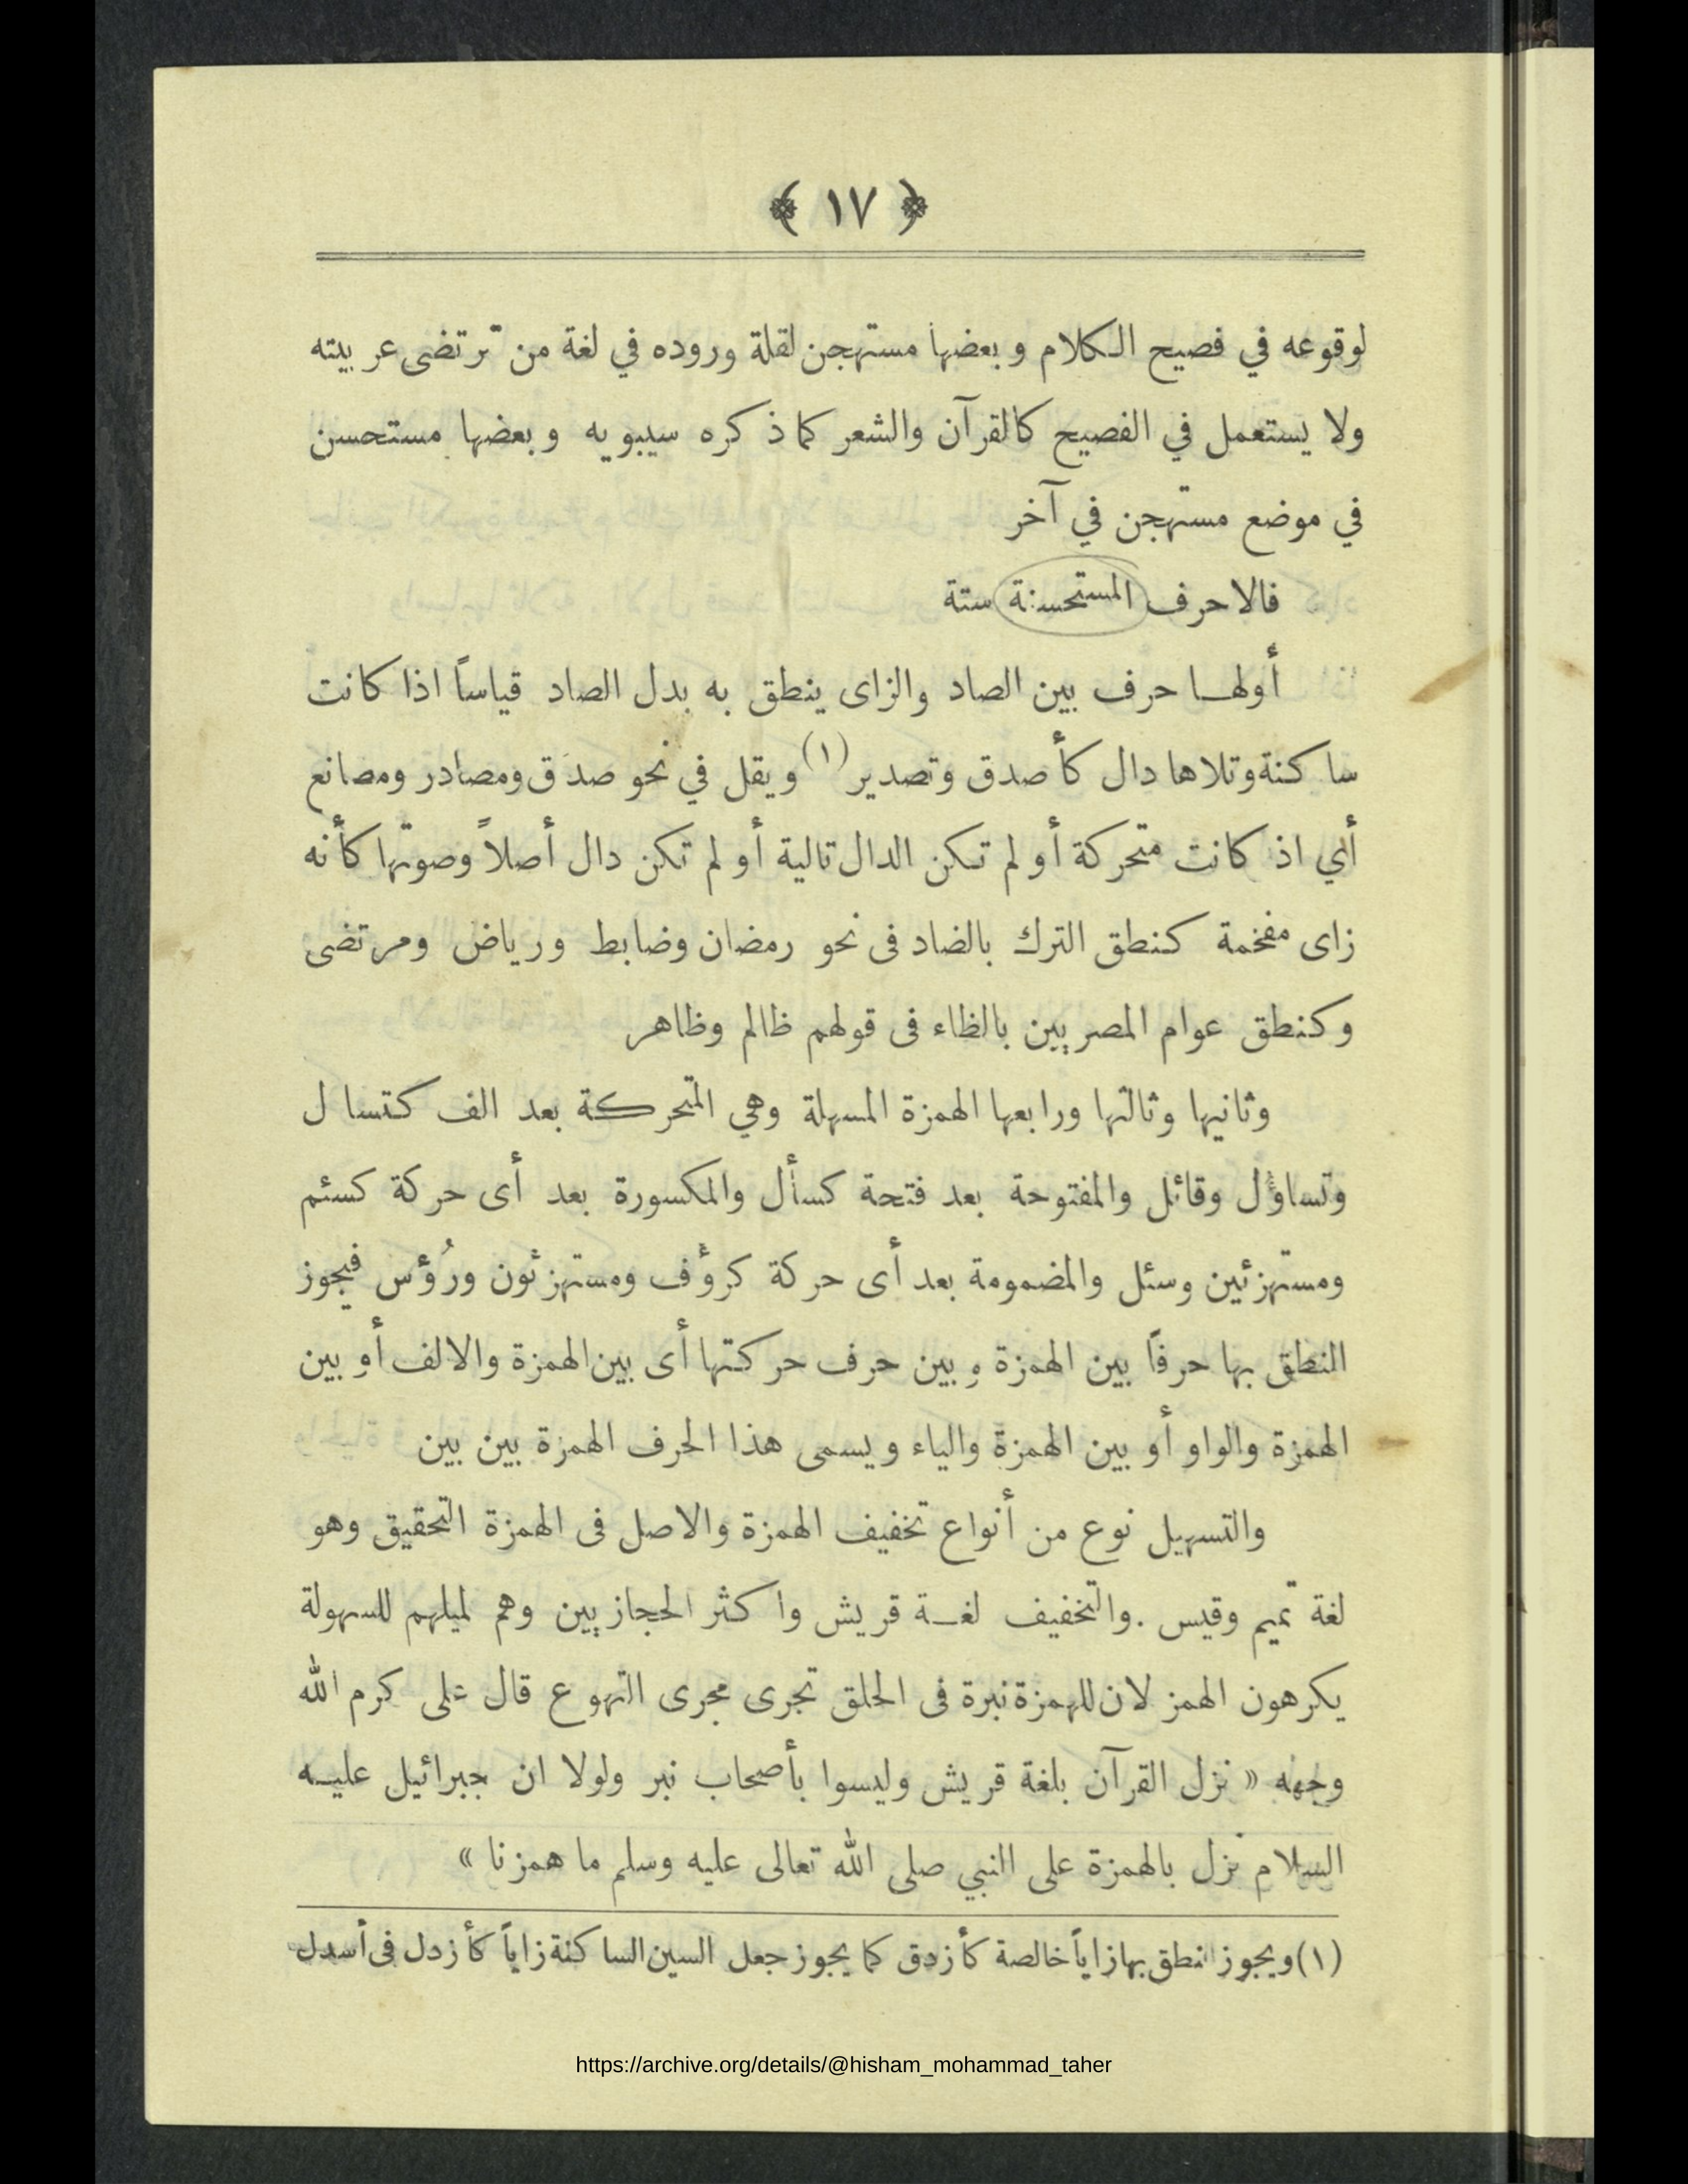 ﴿ ١٧ ﴾
لوقوعه في فصيح الكلام وبعضها مستهجن لقلة وروده في لغة من ترتضى عربيته
ولا يستعمل في الفصيح كالقرآن والشعر كما ذكره سيبويه وبعضها مستحسن
في موضع مستهجن في آخر
فالاحرف المستحسنة ستة
أولهـا حرف بين الصاد والزاى ينطق به بدل الصاد قياساً اذا كانت
ساكنة وتلاها دال كأصدق وتصدير (١) ويقل في نحو صدَق ومصادر ومصانع
أي اذ كانت متحركة أو لم تكن الدال تالية أو لم تكن دال أصلاً وصوتها كأنه
زاى مفخمة كنطق الترك بالضاد فى نحو رمضان وضابط ورياض ومرتضى
وكنطق عوام المصريين بالظاء فى قولهم ظالم وظاهر
وثانيها وثالثها ورابعها الهمزة المسهلة وهي المتحركة بعد الف كتسا ل
وتساؤل وقائل والمفتوحة بعد فتحة كسأل والمكسورة بعد أى حركة كسئم
ومستهزئين وسئل والمضمومة بعد أى حركة كرؤف ومستهزئون ورُؤس فيجوز
النطق بها حرفاً بين الهمزة وبين حرف حركتها أى بين الهمزة والالف أو بين
الهمزة والواو أو بين الهمزة والياء ويسمى هذا الحرف الهمزة بين بين
والتسهيل نوع من أنواع تخفيف الهمزة والاصل فى الهمزة التحقيق وهو
لغة تميم وقيس . والتخفيف لغـة قريش واكثر الحجازيين وهم لميلهم للسهولة
يكرهون الهمز لان للهمزة نبرة فى الحلق تجرى مجرى التهوع قال على كرم الله
وجهه « نزل القرآن بلغة قريش وليسوا بأصحاب نبر ولولا ان جبرائيل عليـه
السلام نزل بالهمزة على النبي صلى الله تعالى عليه وسلم ما همزنا »
(١) ويجوز النطق بها زاياً خالصة كأزدق كما يجوز جعل السين الساكنة زاياً كأزدل فى أسدل
https://archive.org/details/@hisham_mohammad_taher